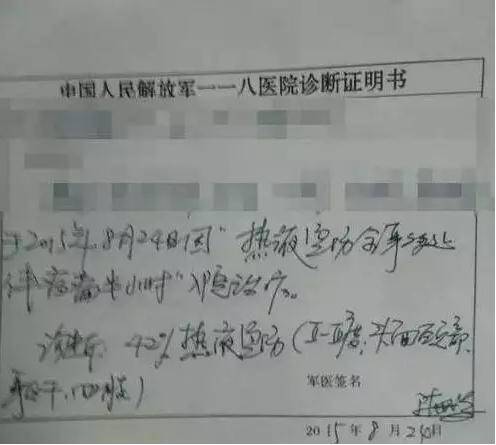 中国人民解放军一一八医院诊断证明书
于2015年8月24日因"热液烫伤全身多处
伴疼痛半小时"入院治疗。
诊断: 42%热液烫伤(Ⅱ-Ⅲ度,头面颈部、
躯干、四肢)
军医签名
2015年8月2 日